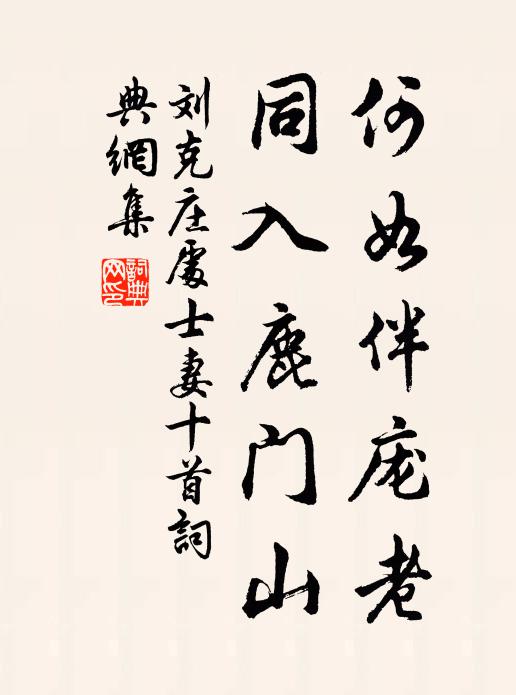 何如伴庞老
同入鹿门山
刘克庄處士妻十首詞
典網集
詞典网印